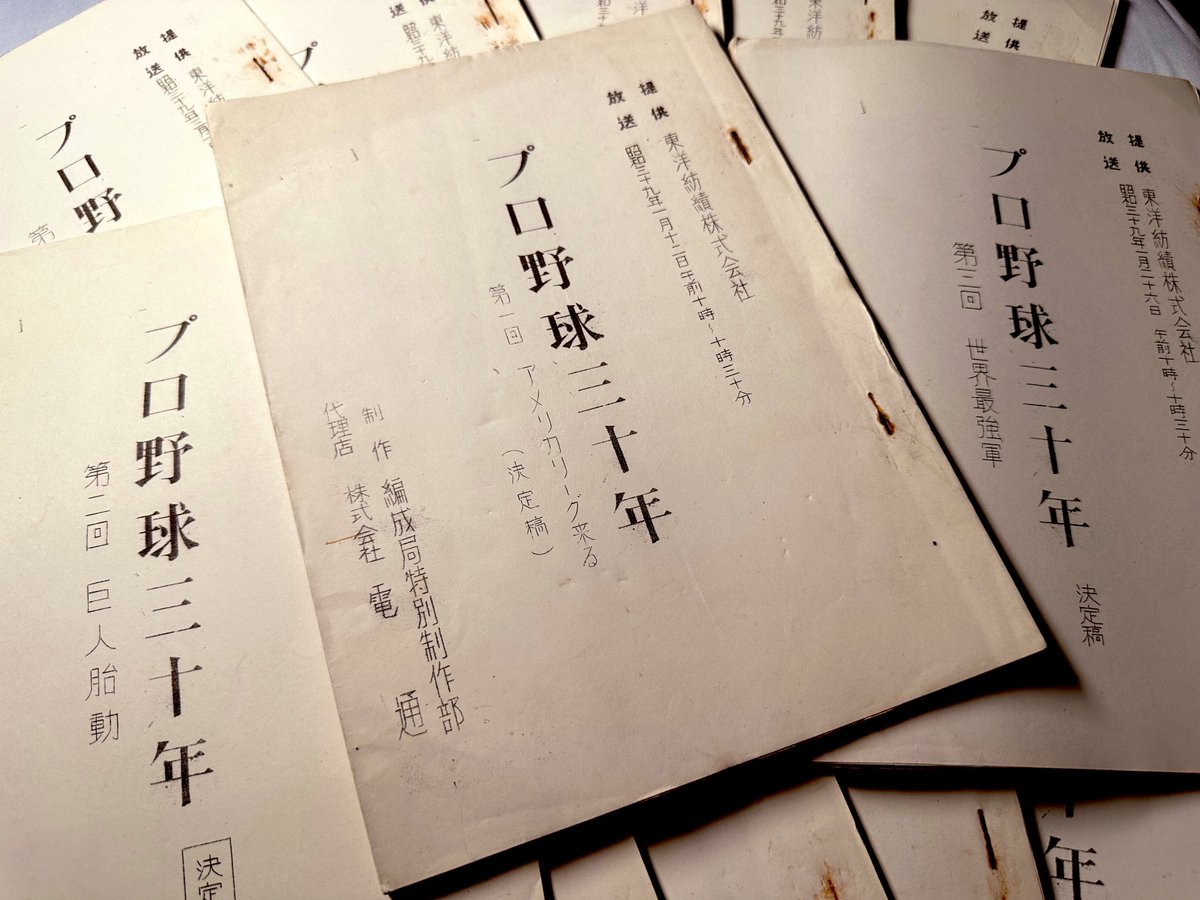 提供 東洋紡績株式会社
放送 昭三十九年一月十二日午前十時~十時三十分
プロ野球三十年
第一回 アメリカリーグ来る
(決定稿)
制作 編成局特別制作部
代理店 株式会社 電通
提供 東洋紡績株式会社
放送 昭三十九年一月二十六日 午前十時~十時三十分
プロ野球三十年
第三回 世界最強軍
決定稿
プロ野球三十年
第二回 巨人胎動
決定
提供 東洋紡
放送 昭三十九年二月
プロ野
第
提供 東洋紡
放送 昭三十九
プ
東洋紡績
昭三十九年
提供
放送
年